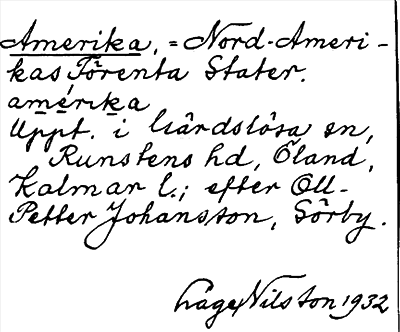 Amerika, = Nord-Ameri-
kas Förenta Stater.
amérika
Uppt. i Gårdslösa sn,
Runstens hd, Öland,
Kalmar l.; efter Oll-
Petter Johansson, Sörby.
Åge Nilsson 1932